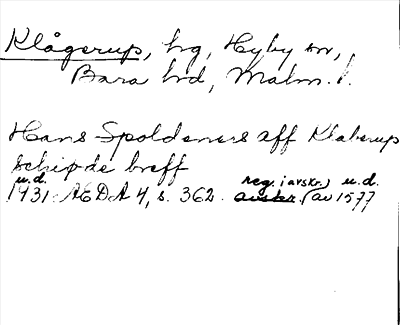 Klågerup, hg, Hyby sn,
Bara hd, Malm. l.
Hans Spoldeners aff Klaberup
schiøde breff
u.d. reg. i avskr. u.d.
1431 AEDA 4, s. 362. avskr. (av 1577